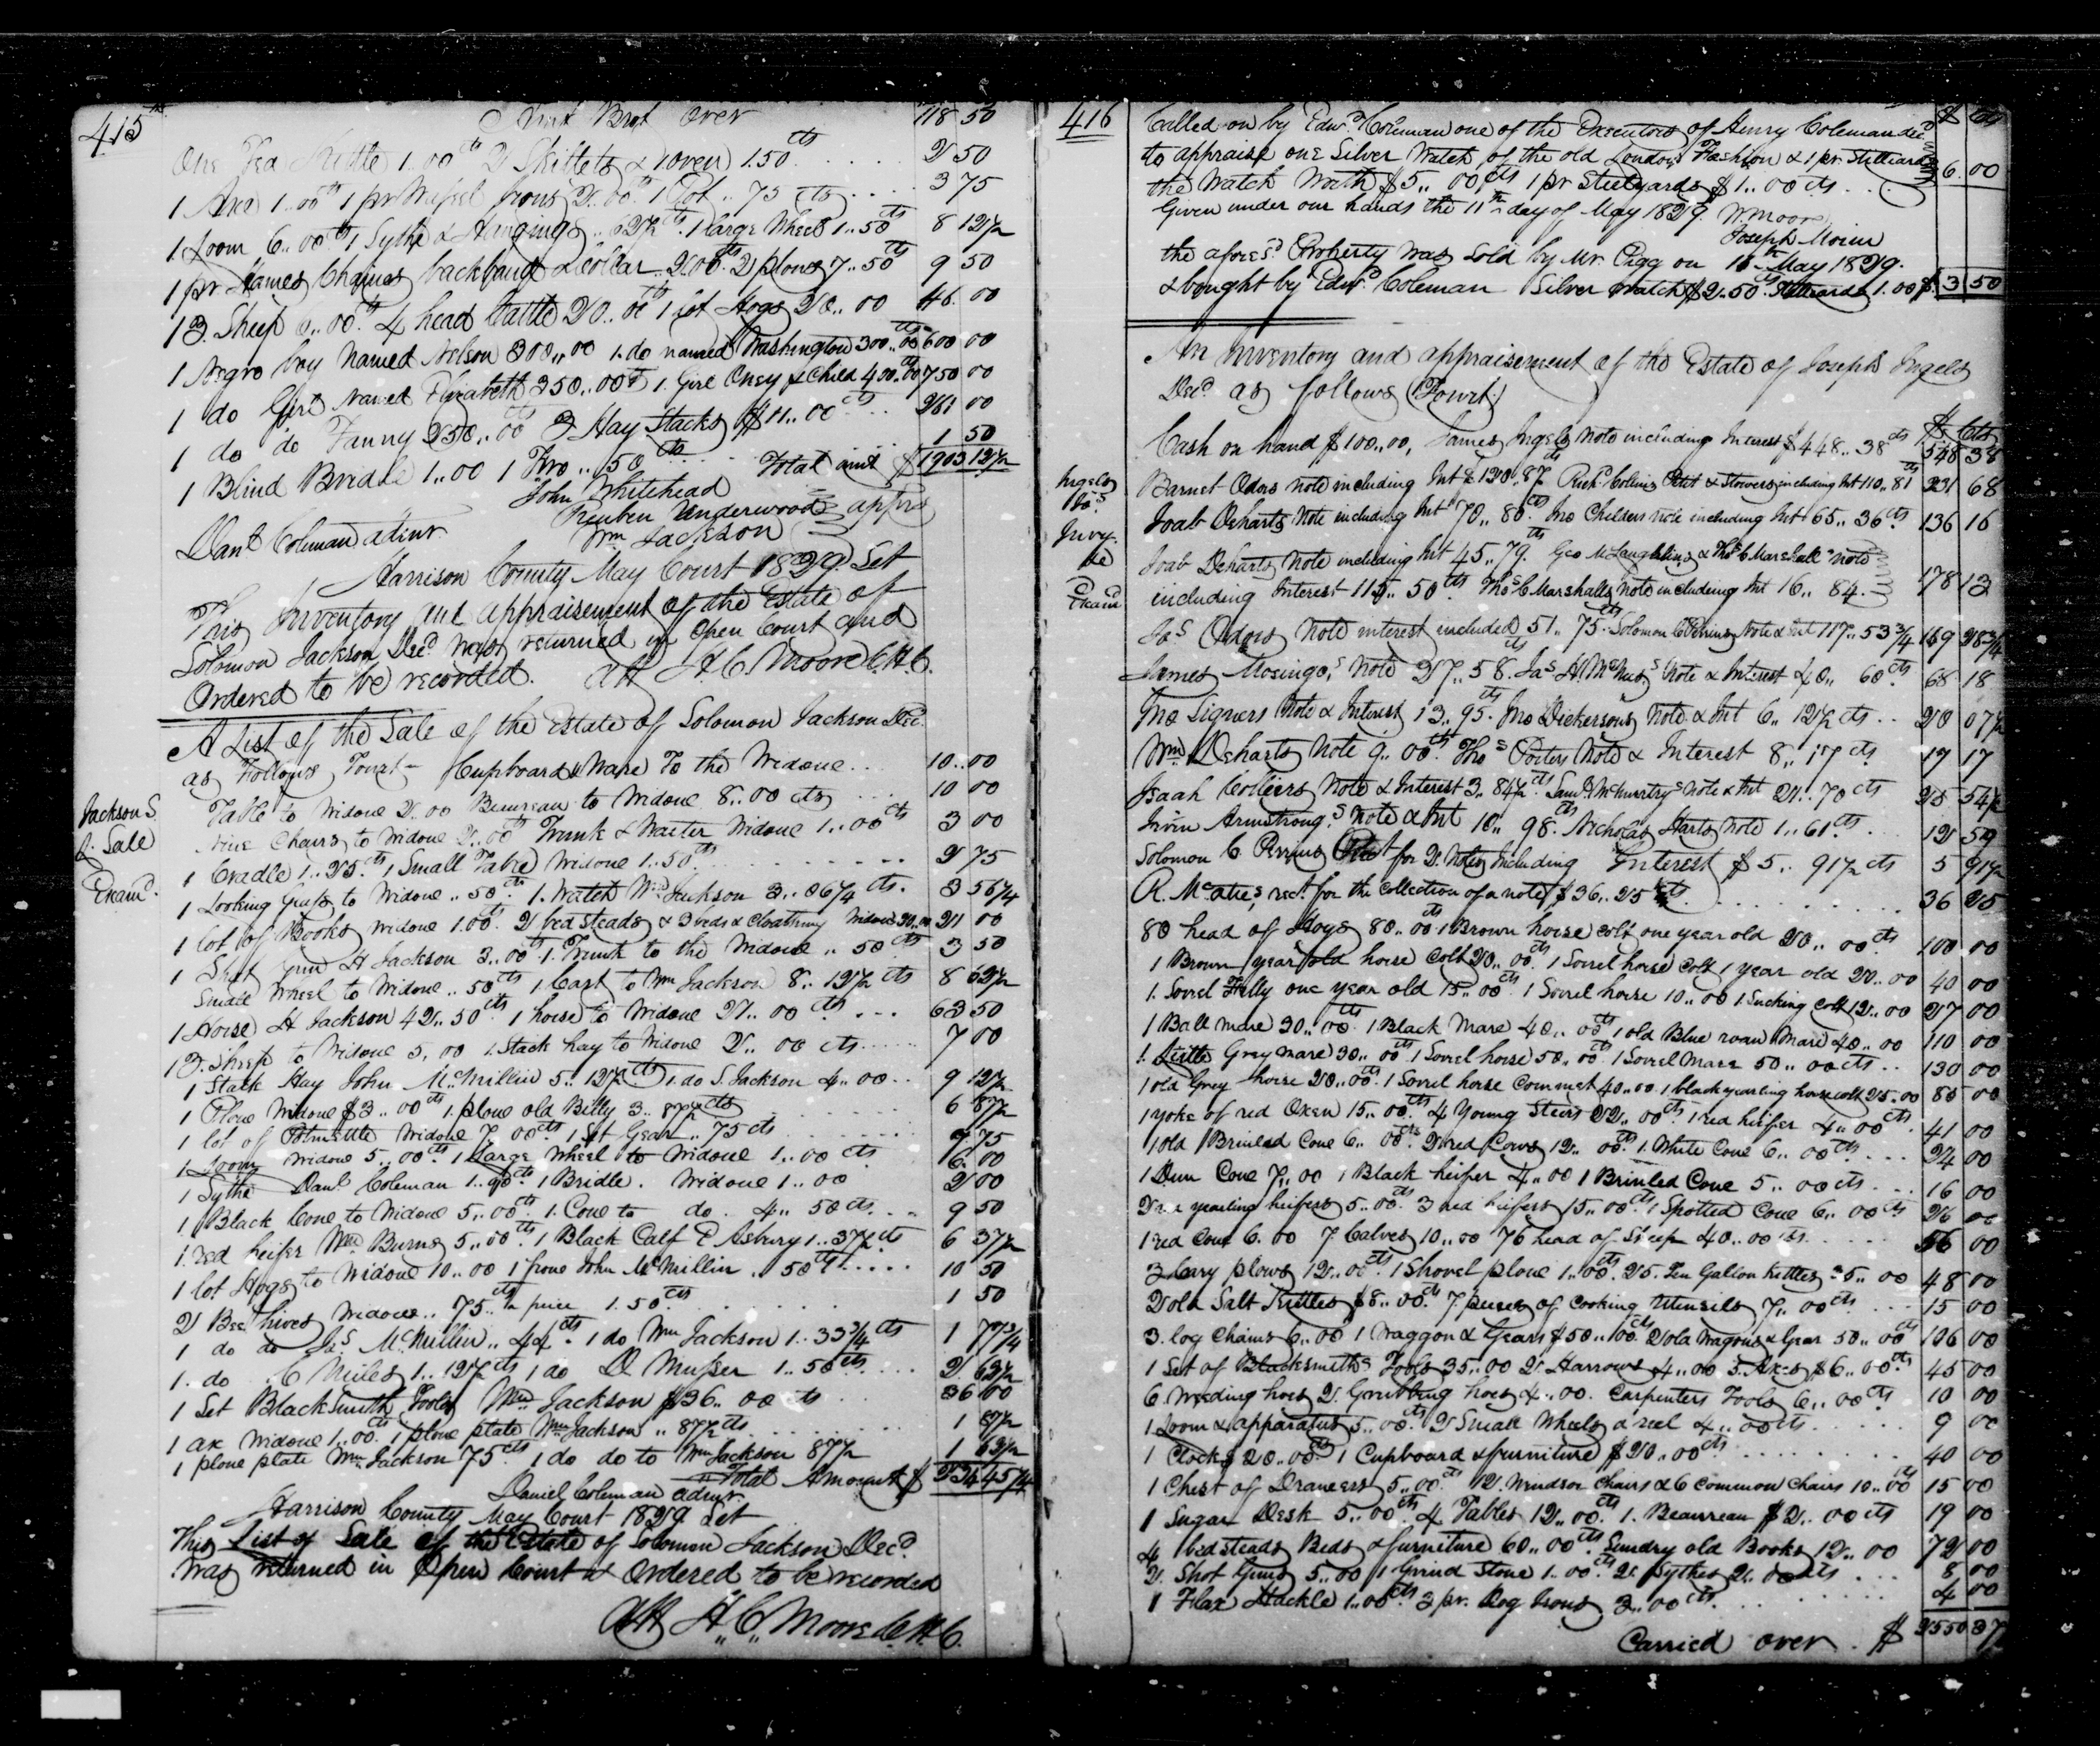 415
Amt Brot Over 118 50
One Tea Kittle 1.00 cts 2 Skillets & 1 oven 1.50 cts 2 50
1 Axe 1..00 cts 1 pr Waffel Irons 2..00 cts 1 Pot .. 75 cts 3 75
1 Loom 6..00 cts 1 Sythe & Hangings .. 62½ cts 1 large Wheel 1..50 cts 8 12½
1 pr Hames Chains backband & Collar .. 2.00 cts 2 plows 7..50 cts 9 50
13 Sheep 6..00 cts 4 head Cattle 20..00 cts 1 lot Hogs 20..00 46 00
1 Negro boy Named Nelson 300..00 1 do named Washington 300..00 cts 600 00
1 do Girl named Elizabeth 350..00 cts 1 Girl Oney & Child 400.00 cts 750 00
1 do do Fanny 250..00 cts 3 Hay Stacks $11..00 cts 261 00
1 Blind Bridle 1..00 1 Fro .. 50 cts 1 50
Total amt $1903 12½
John Whitehead
Reuben Underwood apprs
Wm Jackson
Danl Coleman admr
Harrison County May Court 1829 Set
This Inventory and appraisement of the Estate of
Solomon Jackson Decd was returned in Open Court and
Ordered to be recorded. Att H. C. Moore C.H.C.
A List of the Sale of the Estate of Solomon Jackson Decd
as Follows Towit - Cupboard & Ware To the Widow .. 10..00
Jackson S.
Sale
Examd.
Table to Widow 2.00 Beaureau to Widow 8..00 cts 10 00
nine Chairs to Widow 2..00 cts Trunk & Waiter Widow 1..00 cts 3 00
1 Cradle 1..25 cts 1 Small Table Widow 1..50 cts 2 75
1 Looking Glass to Widow .. 50 cts 1 Watch Wm Jackson 3..06¼ cts. 3 56¼
1 lot of Books Widow 1.00 cts 2 bedsteads & 3 beds & Cloathing Widow 20..00 21 00
1 Shot gun H Jackson 3..00 cts 1 Trunk to the Widow .. 50 cts 3 50
Small Wheel to Widow .. 50 cts 1 Cart to Wm Jackson 8..12½ cts 8 62½
1 Horse H Jackson 42..50 cts 1 horse to Widow 21..00 cts 63 50
13 Sheep to Widow 5.00 1 Stack hay to Widow 2..00 cts 7 00
1 Stack Hay John McMillin 5..12½ cts 1 do S. Jackson 4..00 9 12½
1 Plow Widow $3..00 cts 1 plow old Billy 3..87½ cts 6 87½
1 lot of Potmettle Widow 7.00 cts 1 Set Gear .. 75 cts 7 75
1 Loom Widow 5..00 cts 1 large wheel to Widow 1..00 cts 6 00
1 Sythe Danl Coleman 1..00 cts 1 Bridle Widow 1..00 2 00
1 Black Cow to Widow 5..00 cts 1 Cow to do. 4.. 50 cts 9 50
1 red heifer Wm Burns 5..00 cts 1 Black Calf E Asbury 1..37½ cts 6 37½
1 lot Hogs to Widow 10..00 1 frone John McMillin .. 50 cts 10 50
2 Bee hives Widow .. 75 cts pr price 1.50 cts 1 50
1 do do Jas McMillin .. 44 cts 1 do Wm Jackson 1..33¾ cts 1 77¾
1 do C Miles 1..12½ cts 1 do D. Musser 1..50 cts 2 62½
1 Set Blacksmith Tools Wm Jackson $36..00 cts 36 00
1 ax Widow 1..00 cts 1 plow plate Wm Jackson .. 87½ cts 1 87½
1 plow plate Wm Jackson 75 cts 1 do do to Wm Jackson 87½ 1 62½
Total Amount $ 234 45¼
Daniel Coleman admr.
Harrison County May Court 1829 Set
This List of Sale of the Estate of Solomon Jackson Decd
was returned in Open Court & Ordered to be recorded
Att H. C. Moore C.H.C.
416
Called on by Edwd Coleman one of the Executors of Henry Coleman decd $ Cts
to appraise one Silver Watch of the old London Fashion & 1 pr Stilliards
the Watch Worth $5..00 cts 1 pr Steelyards $1..00 cts 6 00
Given under our hands the 11th day of May 1829 W. Moore
Joseph Moore
the afores'd Property was Sold by Mr. Pigg on 11 May 1829.
& bought by Edwd Coleman Silver Watch $2.50 cts Stilliards 1.00 $ 3 50
An Inventory and appraisement of the Estate of Joseph Ingels
Decd as follows (Towit)
$ Cts
Cash on hand $100..00, James Ingels Note including Interest $448..38 cts 548 38
Ingels
Jos.
Invy.
&c
Examd
Barnet Odors note including Int $120..87 cts Richd Collins Note & Stowers including Int 110..81 cts 231 68
Joab Deharts Note including Int 70..80 cts Jno Childers note including Int 65..36 cts 136 16
Joab Deharts Note including Int 45..79 cts Geo McLaughlins & Thos C Marshalls note
including Interest 115..50 cts Thos C Marshalls Note including Int 16..84. 178 13
Jas Odors Note interest included 51..75 cts Solomon C Perrins Note & Int 117..53¾ 169 28¾
James Mosingo,s Note 27..58 cts Jas H. McNees Note & Interest 40..60 cts 68 18
Jno Signers Note & Interest 13..95 cts Jno Dickersons Note & Int 6..12½ cts 20 07½
Wm Deharts Note 9..00 cts Thos Porters Note & Interest 8..17 cts 17 17
Isaah Colliers Note & Interest 3..84½ cts Saml McMurtrys Note & Int 21..70 cts 25 54½
Irvin Armstrong,s Note & Int 10..98 cts Nicholas Harts Note 1..61 cts 12 59
Solomon C Perrins for 2 Notes Including Interest $5..91½ cts 5 91½
R. McAtee,s rect for the Collection of a note $36..25 cts 36 25
80 head of Hogs 80..00 cts 1 Brown horse colt one year old 20..00 cts 100 00
1 Brown 1 year old horse Colt 20..00 cts 1 Sorrel horse Colt 1 year old 20..00 40 00
1 Sorrel Filly one year old 15..00 cts 1 Sorrel horse 10..00 1 Sucking Colt 12..00 27 00
1 Ball mare 30..00 cts 1 Black Mare 40..00 cts 1 old Blue roan Mare 40..00 110 00
1 Little Grey mare 30..00 cts 1 Sorrel horse 50..00 cts 1 Sorrel Mare 50..00 cts 130 00
1 old Grey horse 20..00 cts 1 Sorrel horse Commet 40..00 1 black yearling horse colt 25.00 85 00
1 yoke of red Oxen 15..00 cts 4 Young Steers 22..00 cts 1 red heifer 4..00 cts 41 00
1 old Brinled Cow 6..00 cts 2 red Cows 12..00 cts 1 White Cow 6..00 cts 24 00
1 Dun Cow 7..00 1 Black heifer 4..00 1 Brinled Cow 5..00 cts 16 00
2 yearling heifers 5.00 cts 3 red heifers 15..00 cts 1 Spotted Cow 6..00 cts 26 00
1 red Cow 6.00 7 Calves 10..00 76 head of Sheep 40..00 cts 56 00
3 Cary plows 12..00 cts 1 Shovel plow 1..00 cts 25 Ten Gallon Kettles 35..00 48 00
2 old Salt Kettles $8..00 cts 7 pieces of Cooking Utensils 7..00 cts 15 00
3 log Chains 6..00 1 Waggon & Gears $50..00 cts 2 old Wagons & Gear 50..00 cts 106 00
1 Set of Blacksmiths Tools 35..00 2 Harrows 4..00 3 Axes $6..00 cts 45 00
6 Weeding hoes 2 Grubbing hoes 4..00 Carpenters Tools 6..00 cts 10 00
1 Loom & apparatus 5..00 cts 2 Small Wheels & reel 4..00 cts 9 00
1 Clock $20..00 cts 1 Cupboard & furniture $20..00 cts 40 00
1 Chest of Drawers 5..00 cts 12 Windsor Chairs & 6 Common Chairs 10..00 cts 15 00
1 Sugar Desk 5..00 cts 4 Tables 12..00 cts 1 Beaureau $2..00 cts 19 00
4 bedsteads Beds & furniture 60..00 cts Sundry old Books 12..00 72 00
2 Shot Guns 5..00 1 Grind Stone 1..00 cts 2 Sythes 2..00 cts 8 00
1 Flax Hackle 1..00 cts 3 pr. Dog Irons 3..00 cts 4 00
Carried over $ 2550 37½